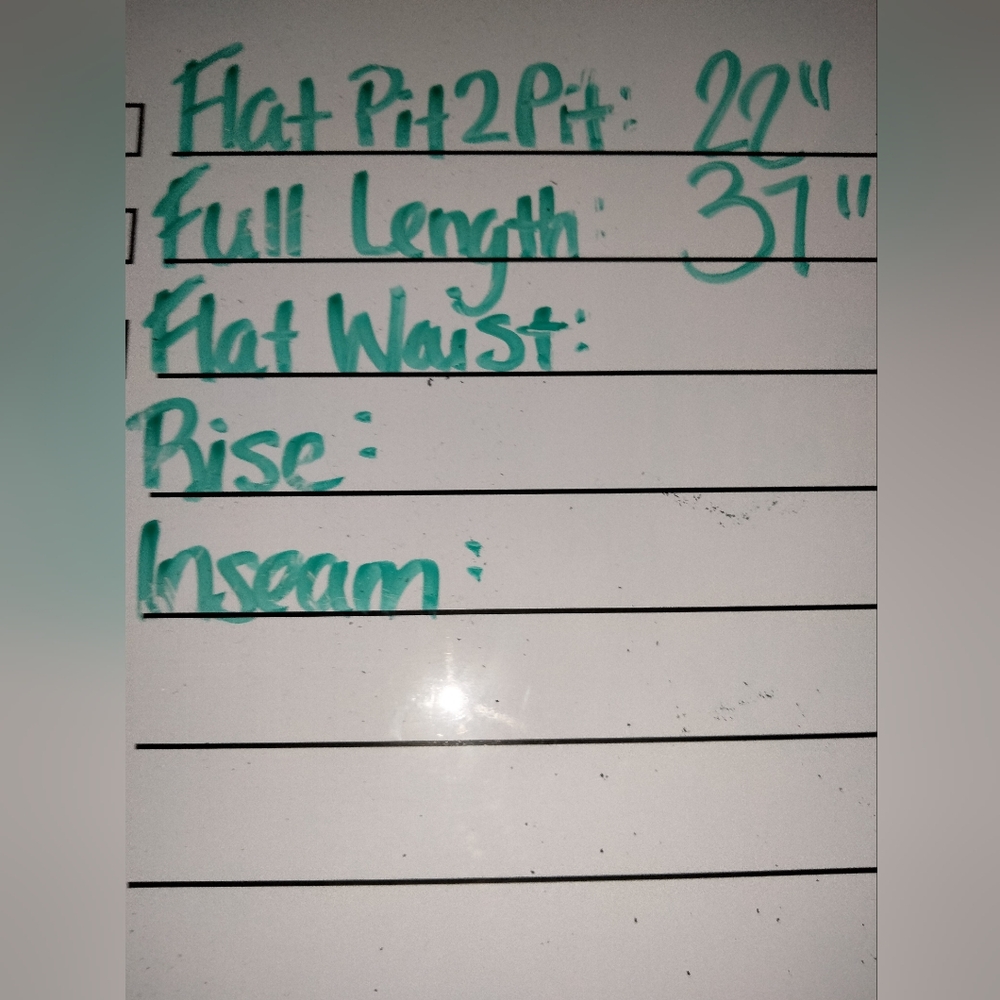 Flat Pit2Pit: 22"
Full Length: 37"
Flat Waist:
Rise:
Inseam: